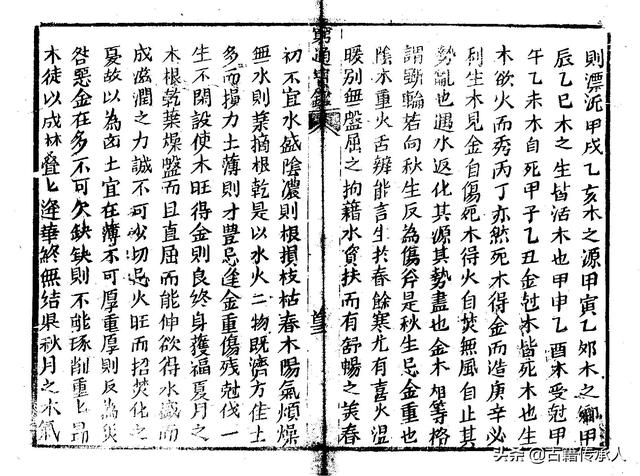 則漂泛甲戌乙亥木之源甲寅乙夘木之鄉甲
辰乙巳木之生皆活木也甲申乙酉木受尅甲
午乙未木自死甲子乙丑金尅木皆死木也生
木欲火而秀丙丁亦然死木得金而造庚辛必
利生木見金自傷死木得火自焚無風自止其
勢亂也遇水返化其源其勢盡也金木相等格
謂斲輪若向秋生反為傷斧是秋生忌金重也
陰木重火舌辨能言生於春餘寒尤有喜火温
暖别無盤屈之拘藉水資扶而有舒暢之美春
窮通寶鑑
初不宜水盛陰濃則根損枝枯春木陽氣煩燥
無水則葉摘根乾是以水火二物既濟方佳土
多而損力土薄則才豊忌逢金重傷殘尅伐一
生不閒設使木旺得金則良終身獲福夏月之
木根乾葉燥盤而且直屈而能伸欲得水盛而
成滋潤之力誠不可少切忌火旺而招焚化之
憂故以為㐫土宜在薄不可厚重厚則反為灾
咎惡金在多不可欠缺缺則不能琢削重匕見
木徒以成林疊匕逢華終無結果秋月之木氣
头条 @古籍传承人